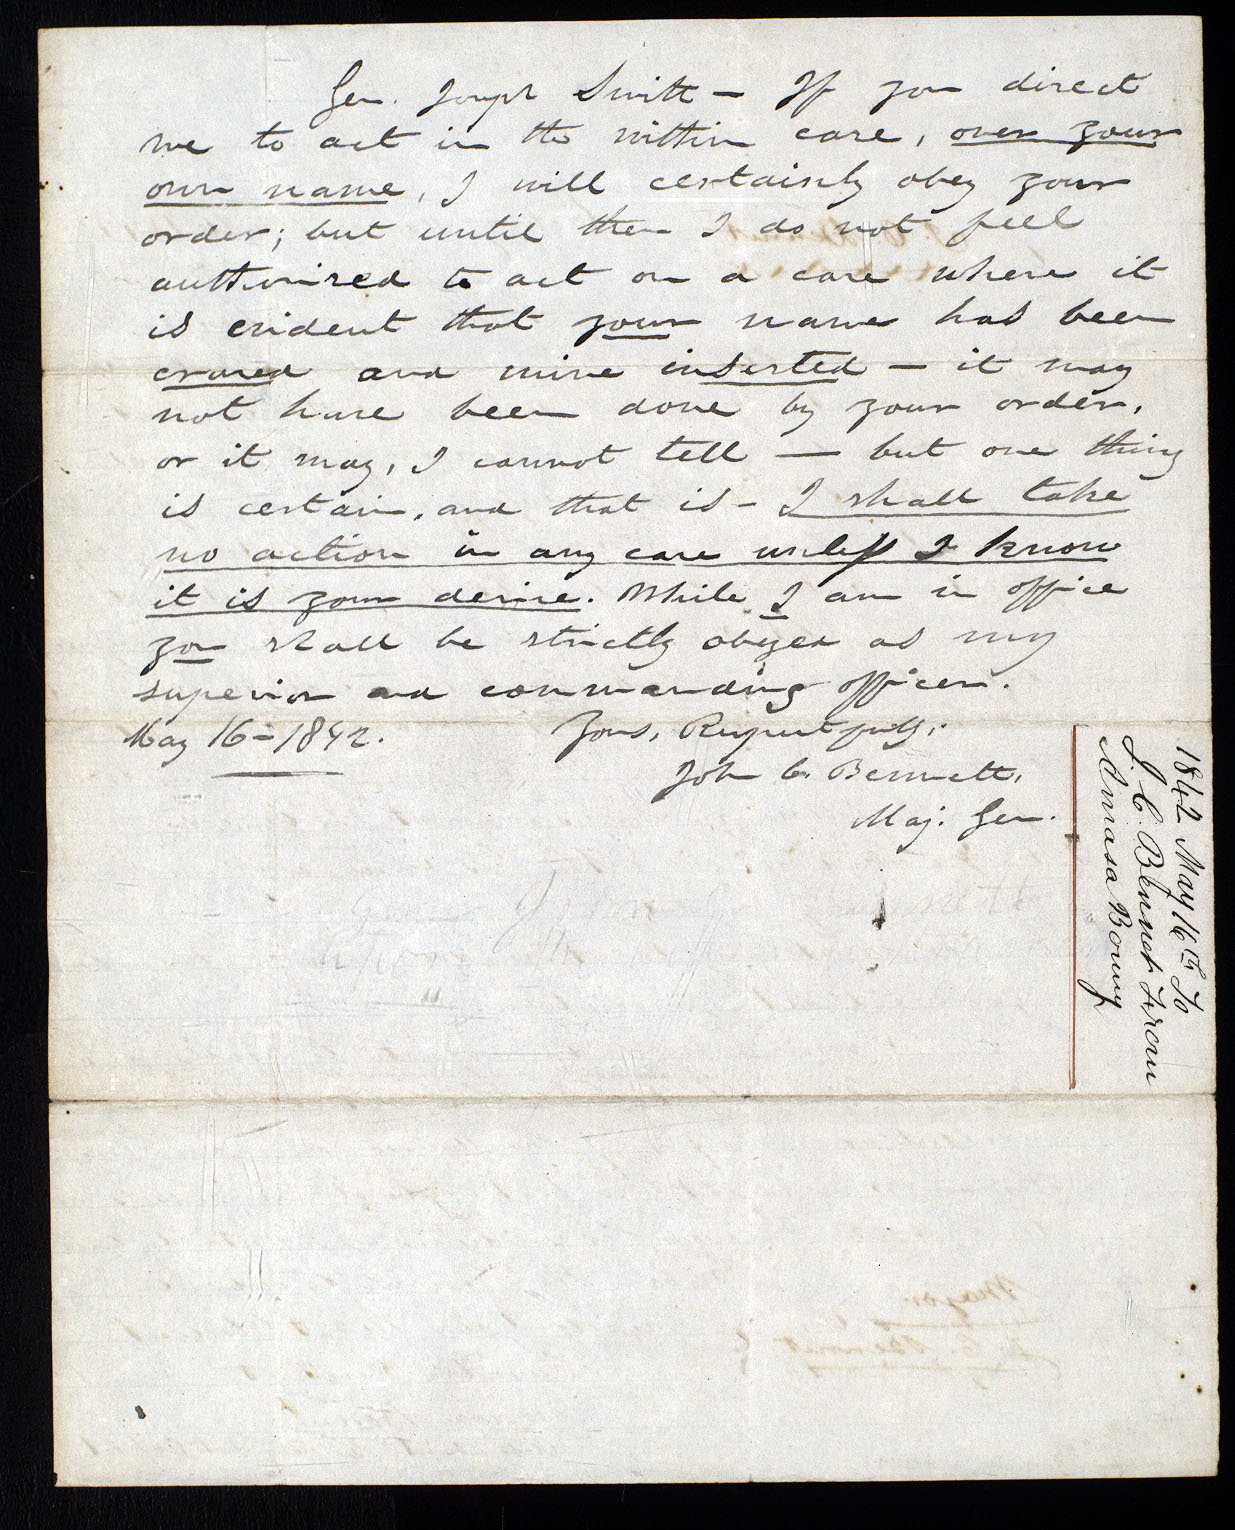 Gen. Joseph Smith — If you direct
me to act in the within case, over your
own name, I will certainly obey your
order; but until then I do not feel
authorized to act on a case where it
is evident that your name has been
erased and mine inserted — it may
not have been done by your order,
or it may, I cannot tell — but one thing
is certain, and that is — I shall take
no action in any case unless I know
it is your desire. While I am in office
you shall be strictly obeyed as my
superior and commanding officer.
May 16 – 1842.
Yours, Respectfully,
John C. Bennett,
Maj. Gen.
1842 May 16th To
J. C. Bennet From
Amasa Bonny